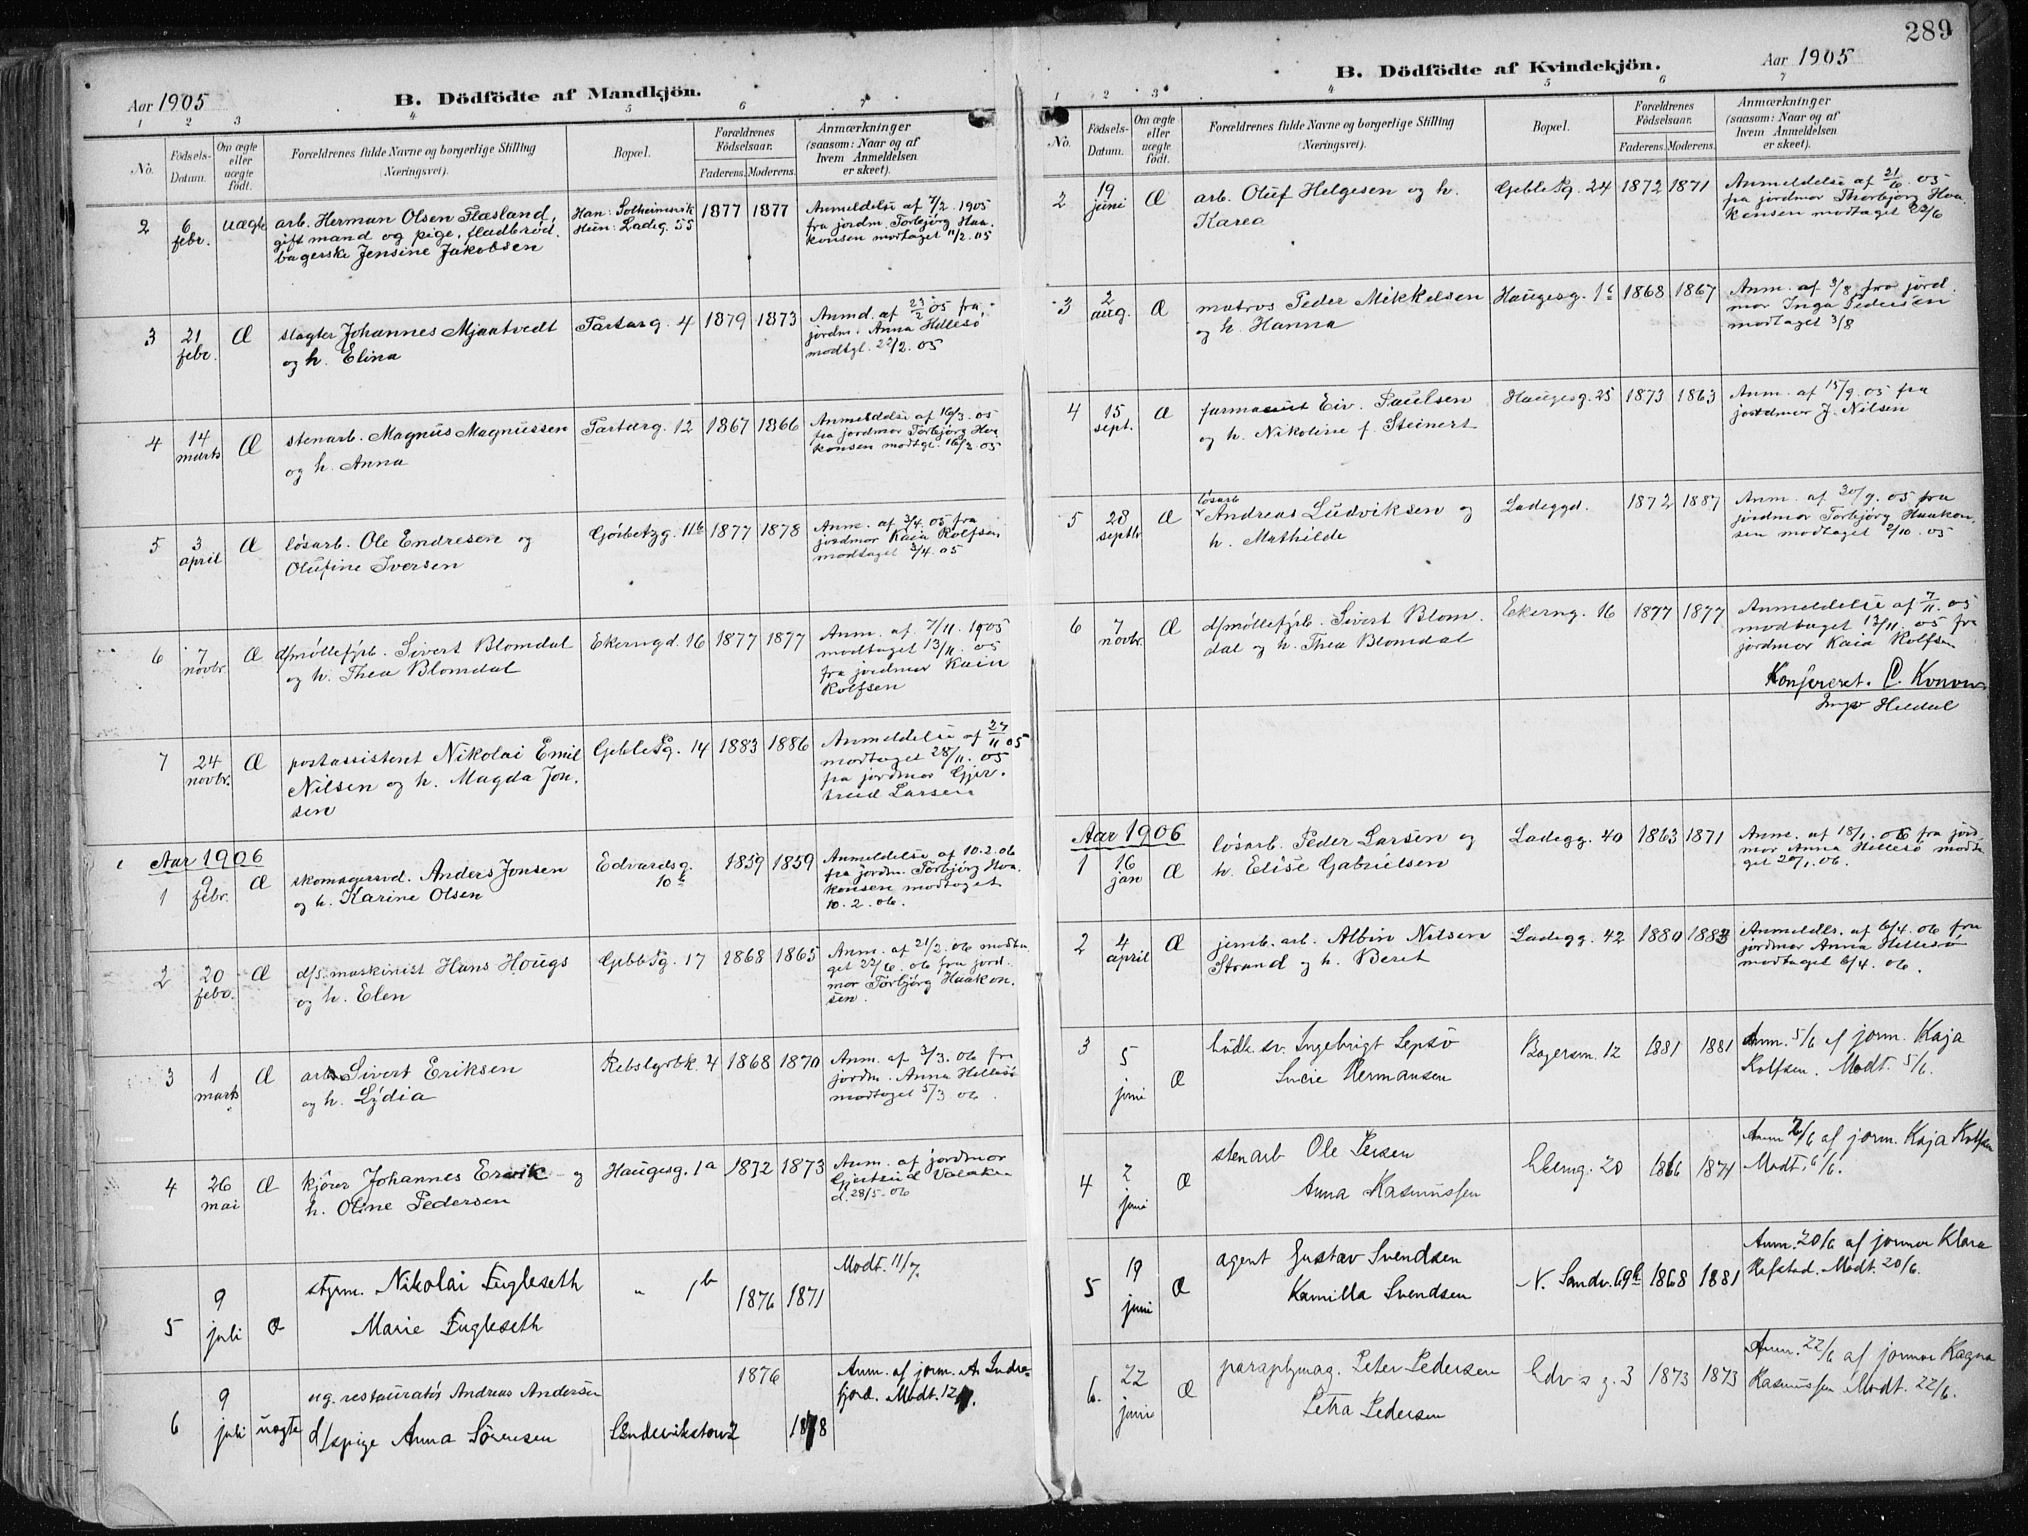 289
Aar 1905
B. Dödfödte af Mandkjön.
1 2 3 4 5 6 7
No.
Födsels-Datum.
Om ægte eller uægte födt.
Forældrenes fulde Navne og borgerlige Stilling (Næringsvei).
Bopæl.
Forældrenes Födselsaar.
Faderens. Moderens.
Anmærkninger (saasom: Naar og af hvem Anmeldelsen er skeet).
2 6 febr. uægte arb. Herman Olsen Flæsland, Han: Solheimsvik 1877 1877 Anmeldelse af 7/2 1905
gift mand og pige, fladbrød. Hun: Ladeg. 55 fra jordm. Torbjørg Haa-
bagerske Jensine Jakobsen konsen modtaget 11/2. 05
3 21 febr. Æ slagter Johannes Mjaatvedt Tartarg. 4 1879 1873 Anmd. af 23/2 05 fra
og h. Elina jordm. Anna Hillesø
modtgt. 23/2. 05
4 14 marts Æ stenarb. Magnus Magnussen Tartarg. 12 1867 1866 Anmeldelse af 16/3. 05
og h. Anna fra jordmor Torbjørg Haa-
konsen modtgt. 16/3. 05
5 3 april Æ løsarb. Ole Endresen og Görbetzg. 11b 1877 1878 Anm. af 3/4. 05 fra
Olufine Iversen jordmor Kaia Rolfsen
modtaget 3/4. 05
6 7 novbr. Æ d/møllefyrb. Sivert Blomdal Ekerngd. 16 1877 1877 Anm. af 7/11. 1905
og h. Thea Blomdal modtaget 13/11. 05
fra jordmor Kaia
Rolfsen
7 24 novbr. Æ postassistent Nikolai Emil Geble Pg. 14 1883 1886 Anmeldelse af 27/11 05
Nilsen og h. Magda Jon- modtaget 28/11. 05
sen fra jordmor Gjer-
trud Larsen
Aar 1906
1 9 febr. Æ skomagersvd. Anders Jonsen Edvardsg. 10b 1859 1859 Anmeldelse af 10.2.06
og h. Karine Olsen fra jordm. Torbjörg Haa-
konsen modtaget
10.2.06.
2 20 febr. Æ d/s. maskinist Hans Hougs Geble Pg. 17 1868 1865 Anm. af 21/2. 06 modta-
og h. Elen get 22/6. 06 fra jord-
mor Torbjörg Haakon-
sen.
3 1 marts Æ arb. Sivert Eriksen Rebslgrbk. 4 1868 1870 Anm. af 3/3. 06 fra
og h. Lydia jordm. Anna Hillesø
modtaget 5/3. 06.
4 26 mai Æ kjører Johannes Ervik og Haugesg. 1a 1872 1873 Anm. af jordmor
h. Oline Pedersen Gjertrud
d. 28/5. 06
5 9 juli Æ styrm. Nikolai Fugleseth " 1b 1876 1871 Modt. 11/7.
Marie Fugleseth
6 9 juli uægte ug. restauratør Andreas Andersen 1876 Anm. af jorm. A. Indre-
fjord. Modt. 12/7.
d/s pige Anna Sørensen 2 1878
Aar 1905
B. Dödfödte af Kvindekjön.
1 2 3 4 5 6 7
No.
Födsels-Datum.
Om ægte eller uægte födt.
Forældrenes fulde Navne og borgerlige Stilling (Næringsvei).
Bopæl.
Forældrenes Födselsaar.
Faderens. Moderens.
Anmærkninger (saasom: Naar og af hvem Anmeldelsen er skeet).
2 19 juni Æ arb. Oluf Helgesen og h. Geble Pg. 24 1872 1871 Anmeldelse af 21/6. 05
Karea fra jordmor Thorbjörg Haa-
konsen modtaget 22/6
3 2 aug. Æ matros Peder Mikkelsen Haugesg. 1c 1868 1867 Anm. af 3/8 fra jord-
og h. Hanna mor Inga Pedersen
modtaget 3/8
4 15 sept. Æ farmaceut Eiv. Paulsen Haugesg. 25 1873 1863 Anm. af 15/9. 05 fra
og h. Nikoline f. Steinert jordmor J. Nilsen
5 28 septbr Æ løsarb Andreas Ludviksen og Ladeggd. 1872 1887 Anm. af 30/9. 05 fra
h. Mathilde jordmor Torbjørg Haakon-
sen modtaget 2/10. 05
6 7 novbr. Æ d/møllefyrb. Sivert Blom- Eckerng. 16 1877 1877 Anmeldelse af 7/11. 05
dal og h. Thea Blomdal modtaget 13/11. 05 fra
jordmor Kaia Rolfsen
Konfereret. C. Konow
Heldal
Aar 1906
1 16 jan Æ løsarb. Peder Larsen og Ladegg. 40 1863 1871 Anm. af 18/1. 06 fra jord-
h. Elise Gabrielsen mor Anna Hillesø modta-
get 20/1. 06.
2 4 april Æ jernb. arb. Albin Nilsen Ladegg. 42 1880 1883 Anmeldls. af 6/4. 06 fra
Strand og h. Beret jordmor Anna Hillesø
modtaget 6/4. 06.
3 5 juni Æ sv. Ingebrigt Lepsø Bagersm. 12 1881 1881 Anm. 5/6 af jorm. Kaja
Lucie Hermansen Rolfsen. Modt. 5/6.
4 2 juni Æ stenarb Ole Persen 20 1866 1871 Anm. 2/6 af jorm. Kaja Rolfsen
Anna Rasmussen Modt. 6/6.
5 19 juni Æ agent Gustav Svendsen N. Sandv. 69b 1868 1881 Anm. 20/6 af jormor Klara
Kamilla Svendsen Hafstad. Modt. 20/6.
6. 22 juni Æ paraplymag. Peter Pedersen Edv s g. 3 1873 1873 Anm. 22/6 af jormor Ragna
Petra Pedersen Rasmussen Modt. 22/6.